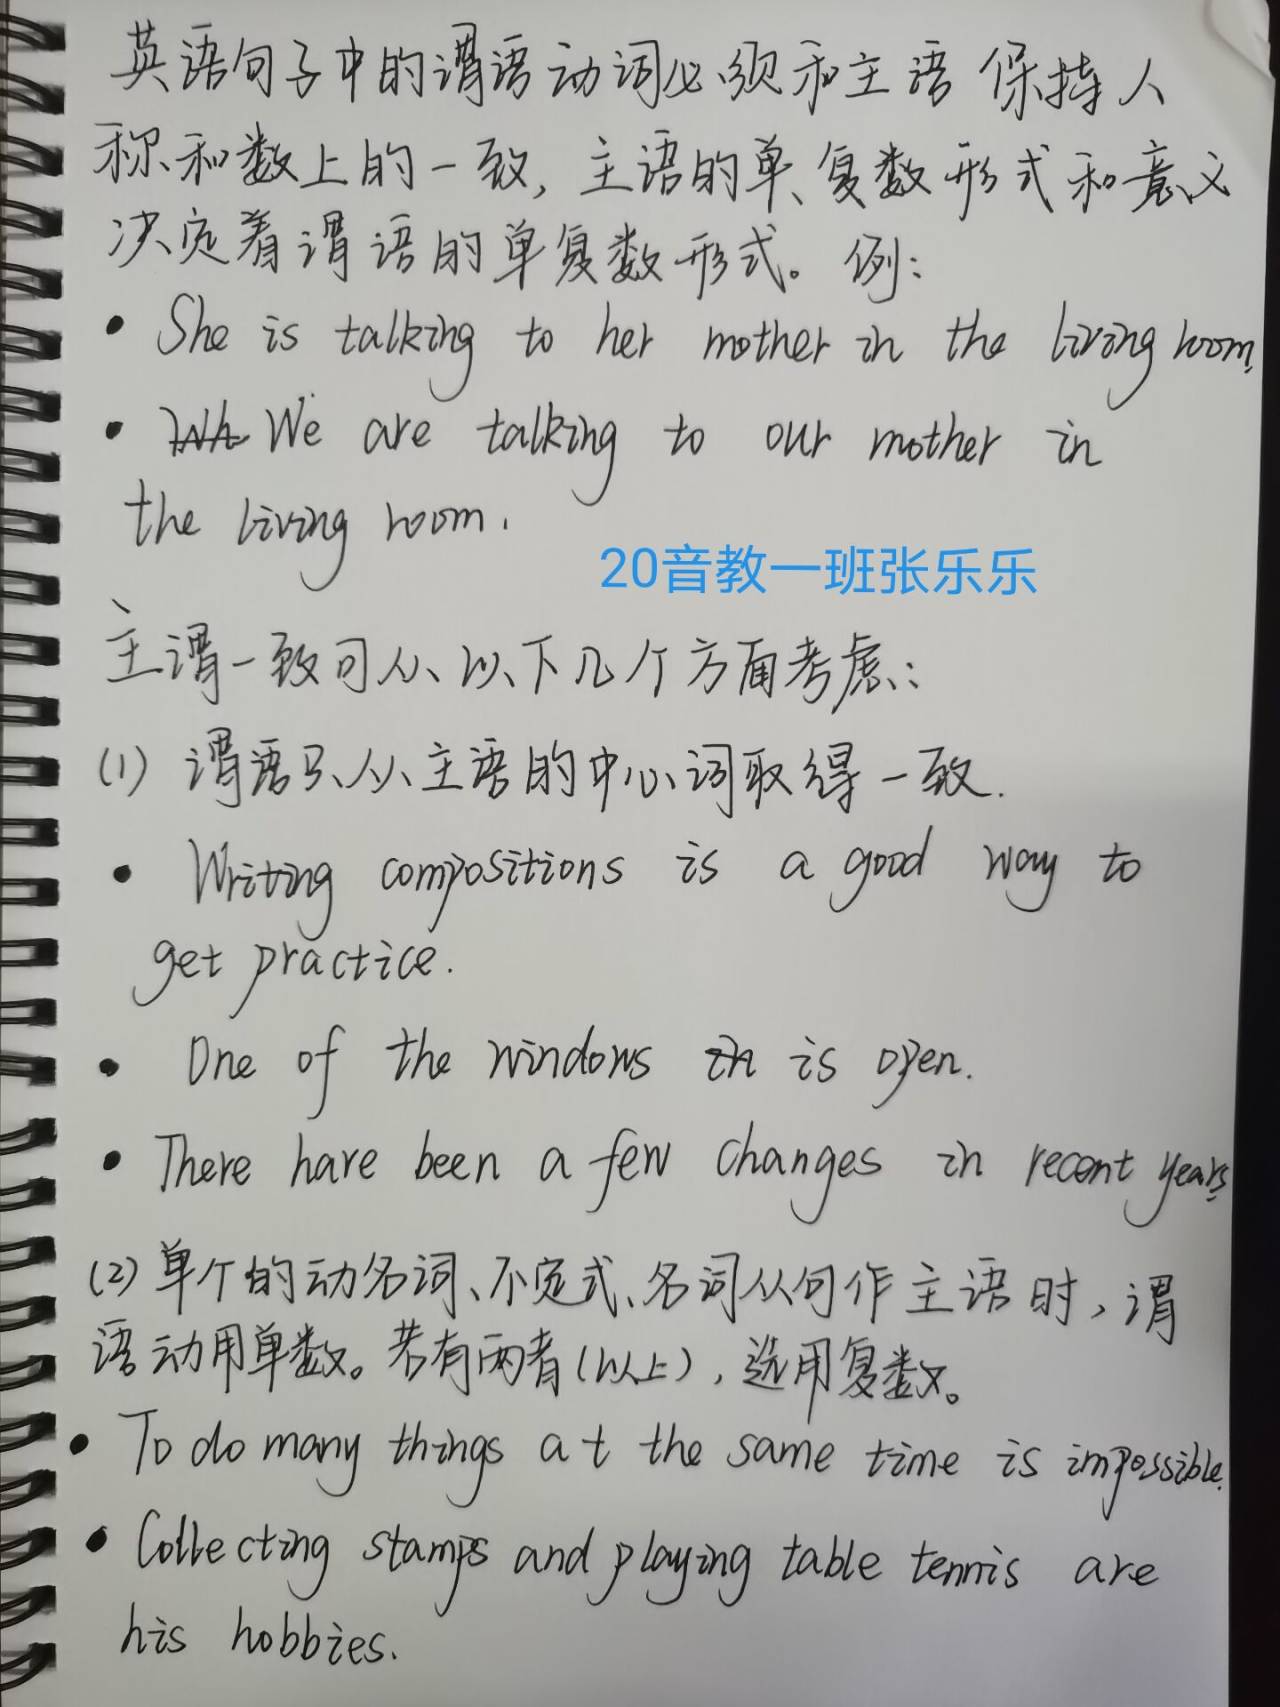 英语句子中的谓语动词必须和主语保持人
称和数上的一致,主语的单、复数形式和意义
决定着谓语的单复数形式。例:
• She is talking to her mother in the living room.
• We are talking to our mother in
the living room.
20音教一班张乐乐
主谓一致可从以下几个方面考虑:
(1) 谓语只从主语的中心词取得一致.
• Writing compositions is a good way to
get practice.
• One of the windows is open.
• There have been a few changes in recent years.
(2) 单个的动名词、不定式、名词从句作主语时,谓
语动用单数。若有两者(以上),选用复数。
• To do many things at the same time is impossible.
• Collecting stamps and playing table tennis are
his hobbies.